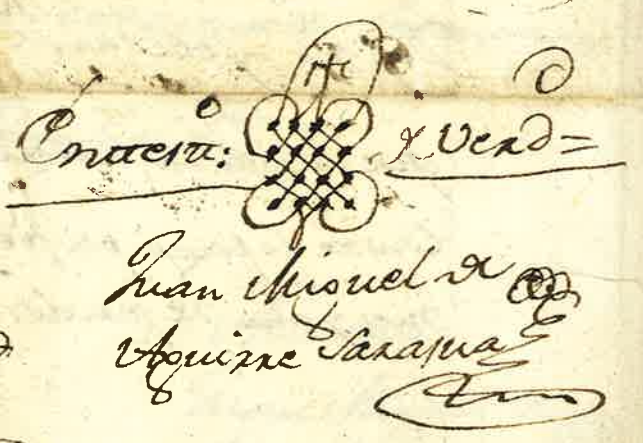 En testi.º: de Verd=
Juan Miguel de
Aguirre Sarasua